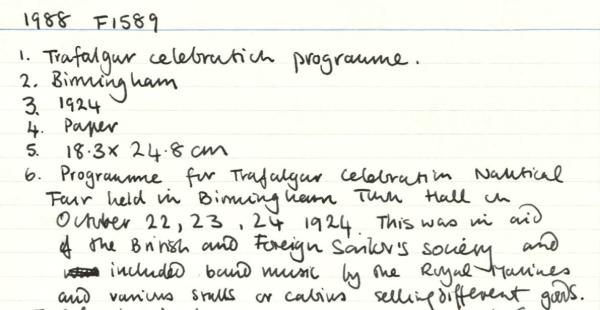 1988 F1589
1. Trafalgar celebration programme.
2. Birmingham
3. 1924
4. Paper
5. 18.3 x 24.8 cm
6. Programme for Trafalgar Celebration Nautical
Fair held in Birmingham Town Hall on
October 22, 23, 24 1924. This was in aid
of the British and Foreign Sailor's society and
included band music by the Royal Marines
and various stalls or cabins selling different goods.